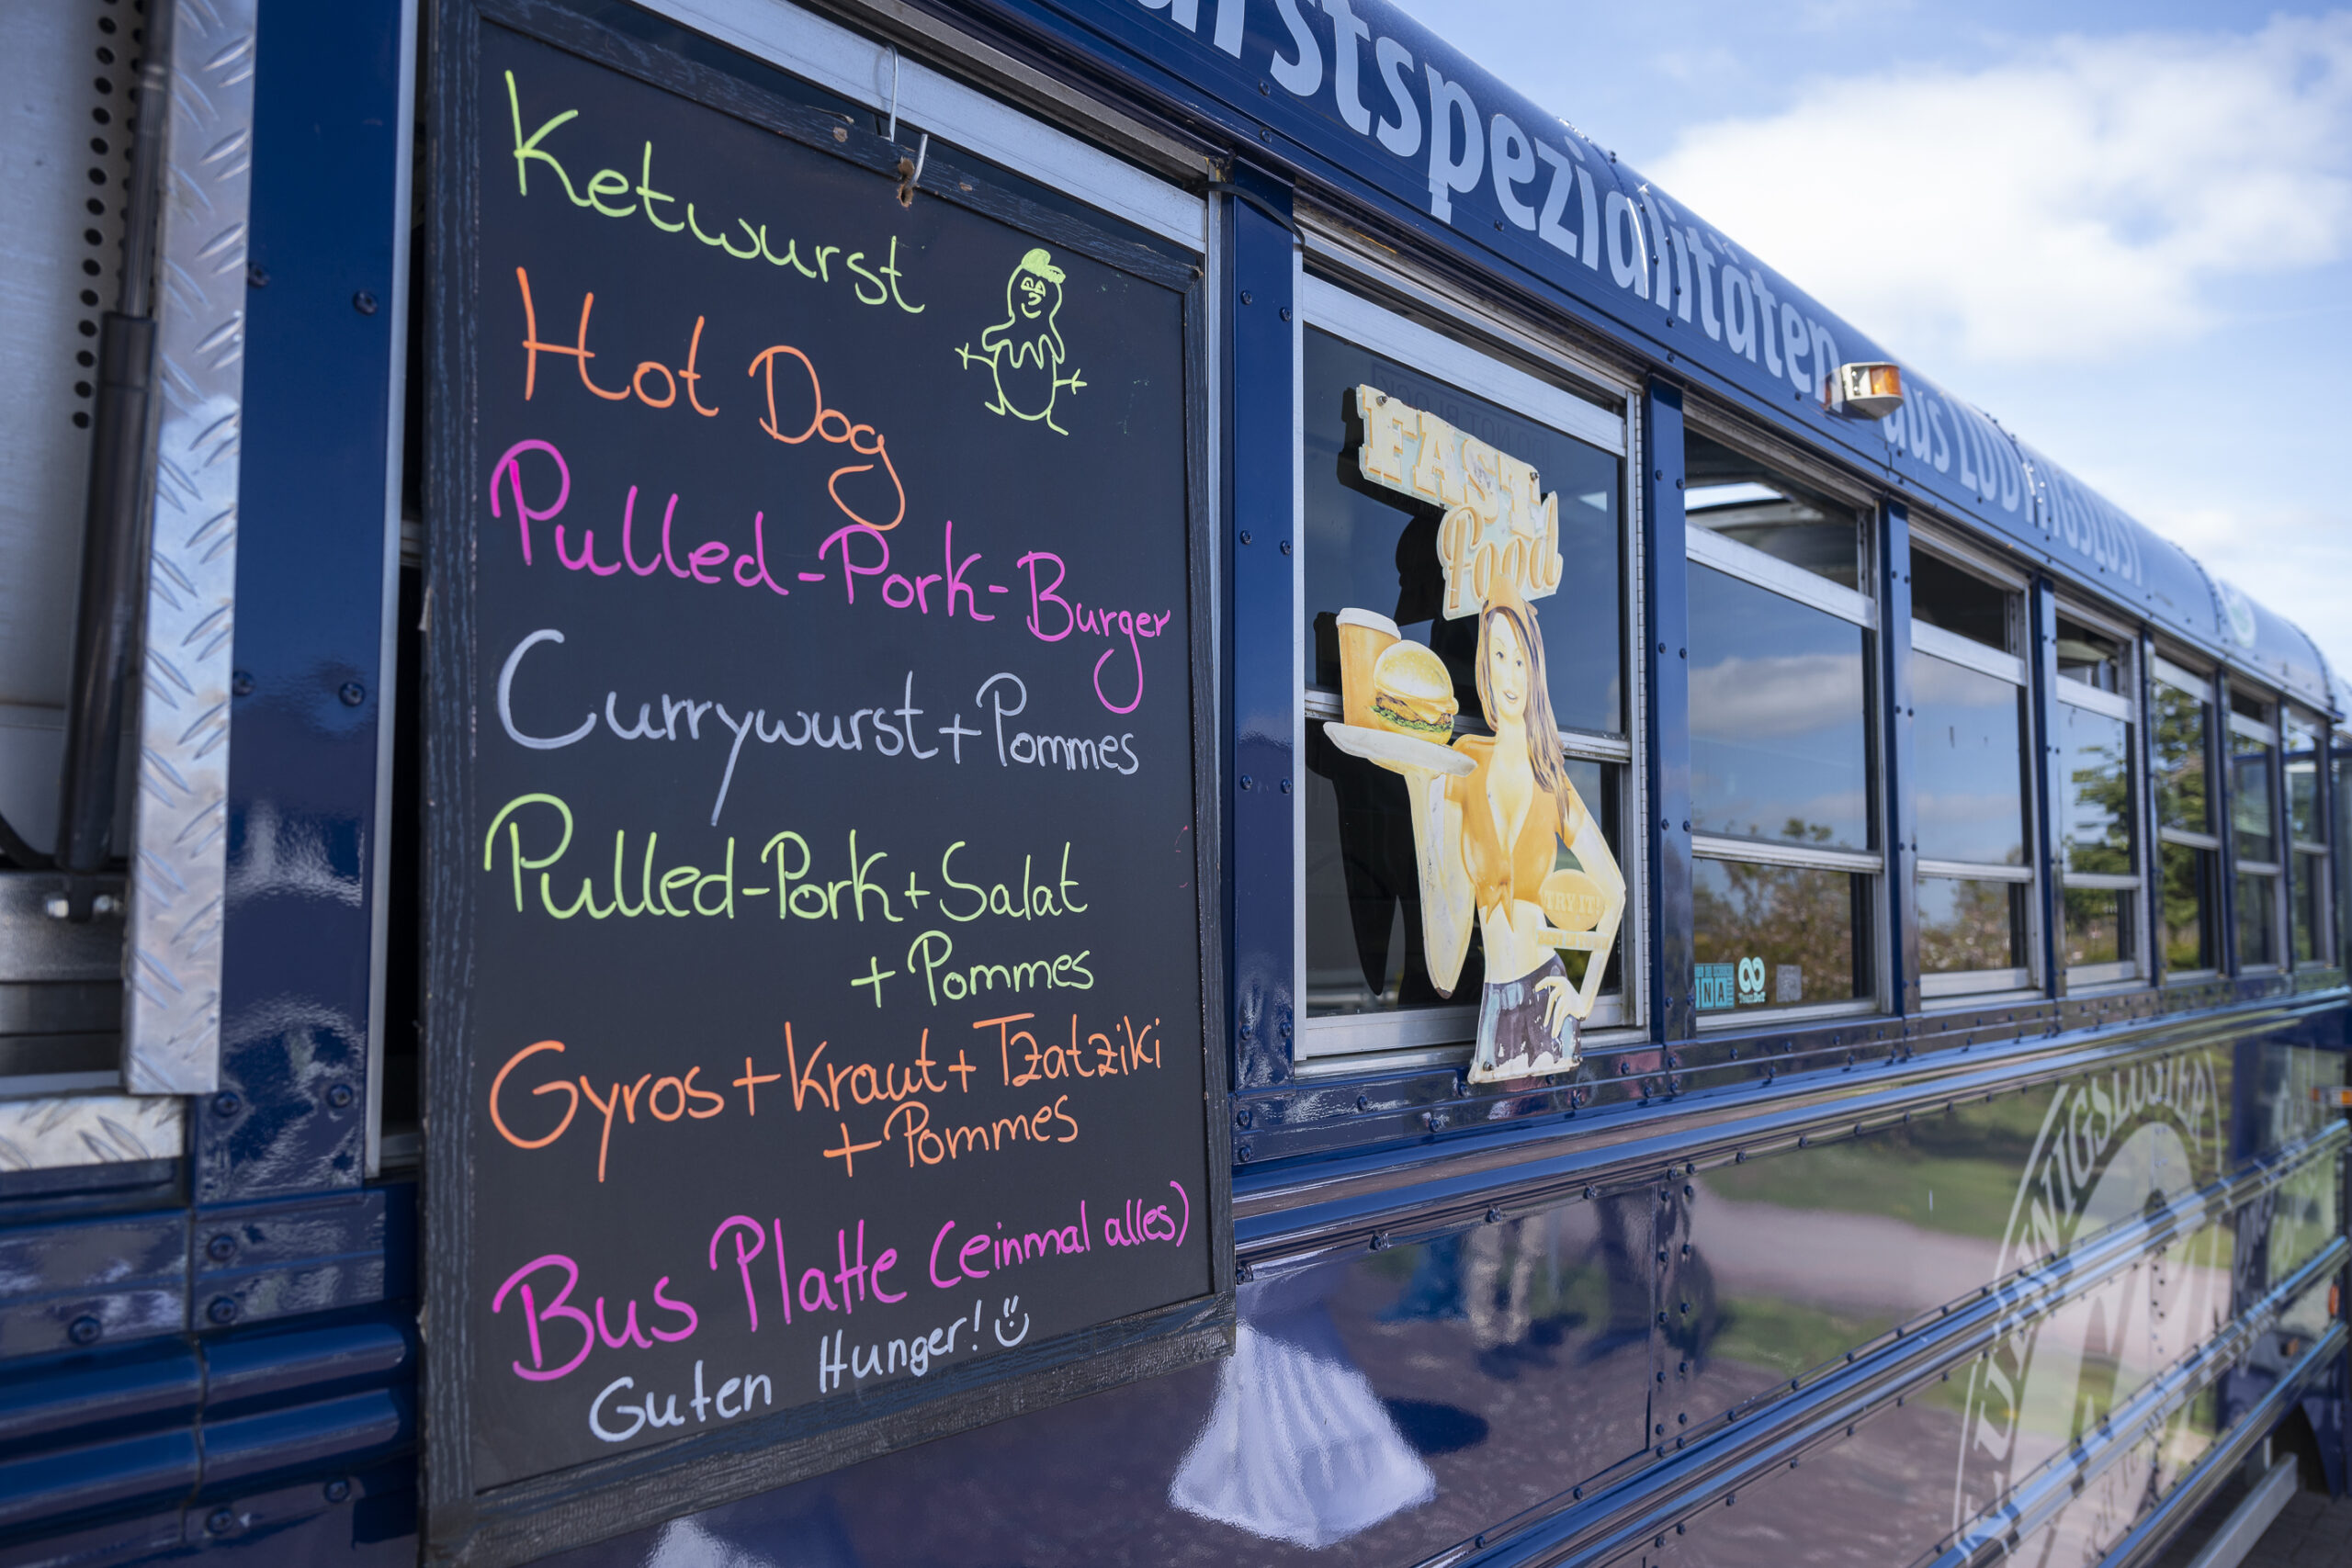 Ketwurst
Hot Dog
Pulled-Pork-Burger
Currywurst + Pommes
Pulled-Pork + Salat
+ Pommes
Gyros + Kraut + Tzatziki
+ Pommes
Bus Platte (einmal alles)
Guten Hunger!
urstspezialitäten aus LUDWIGSLUST
FAST
Food
TRY IT!
LUDWIGSLUSTER